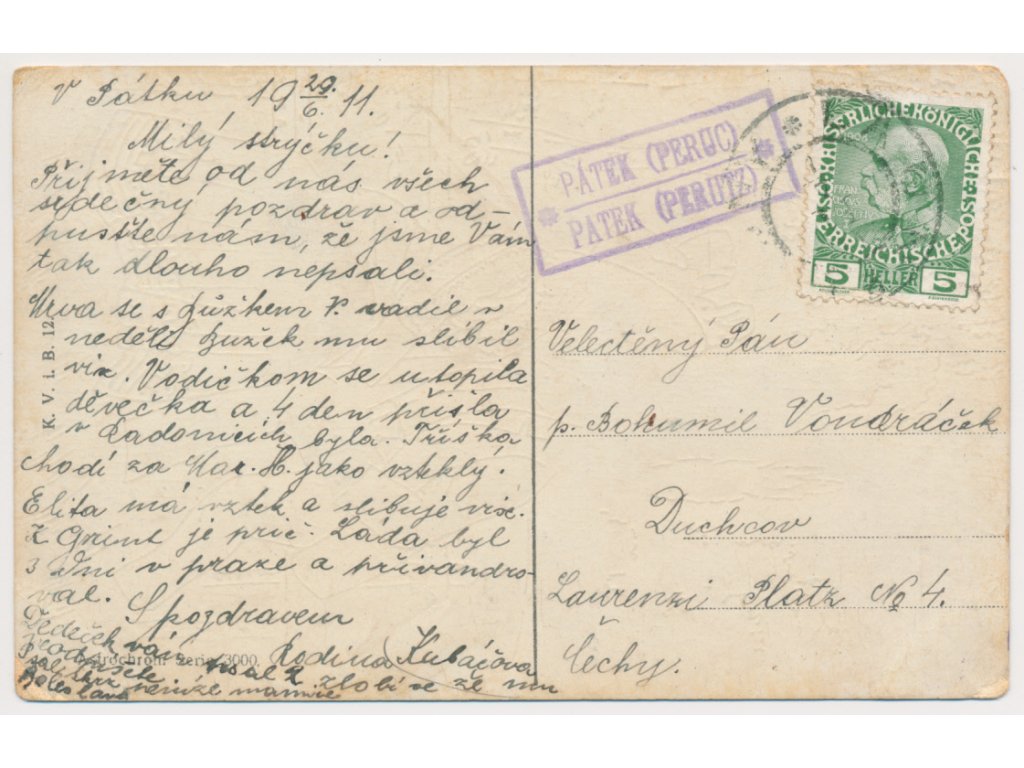 V Pátku 19 29./6. 11.
Milý strýčku!
Přijměte od nás všech
srdečný pozdrav a od-
pusťte nám, že jsme Vám
tak dlouho nepsali.
se s Růžkem vadil v
neděliRužek mu slíbil
více. Vodičkom se utopila
děvečka a 4 den přišla
v Radonicích byla. Tříška
chodí za Mar. H. jako vzteklý.
Elita má vztek a slibuje více.
Ž Grint je prič. Láda byl
3 Dni v praze a přivandro-
val. S pozdravem
Rodina Kubáčova
Dědeček vám
psal z zlobí se že mu
nemůže
Boleslava
K. V. i. B. 12
Serie 3000.
PÁTEK (PERUC)
PATEK (PERUTZ)
KAISERLICHE KÖNIGLICHE POST
ÖSTERREICHISCHE
5 HELLER 5
Velectěný Pán
p. Bohumil Vondráček
Duchcov
Laurenzi Platz No 4.
Čechy.